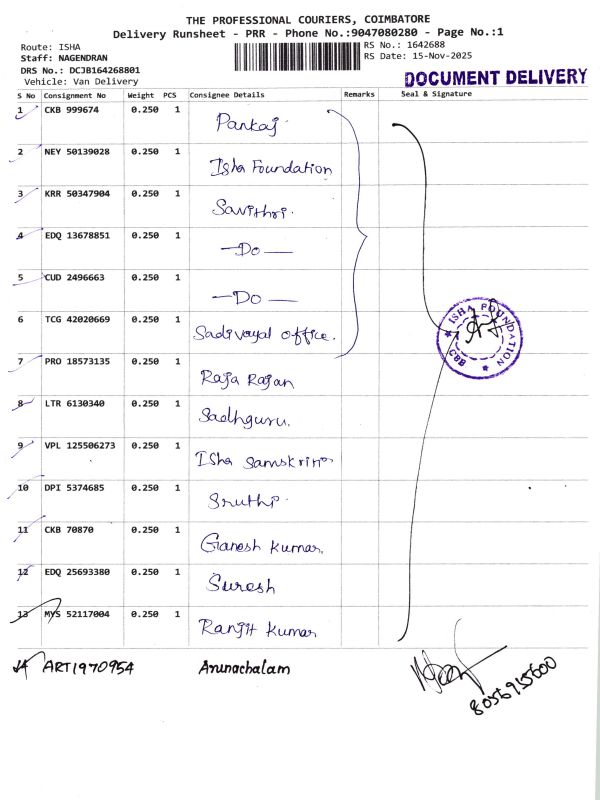 THE PROFESSIONAL COURIERS, COIMBATORE
Delivery Runsheet - PRR - Phone No.:9047080280 - Page No.:1
Route: ISHA
Staff: NAGENDRAN
DRS No.: DCJB164268801
Vehicle: Van Delivery
RS No.: 1642688
RS Date: 15-Nov-2025
DOCUMENT DELIVERY
S No Consignment No Weight PCS Consignee Details Remarks Seal & Signature
1 CKB 999674 0.250 1 Pankaj
2 NEY 50139028 0.250 1 Isha Foundation
3 KRR 50347904 0.250 1 Savithri.
4 EDQ 13678851 0.250 1 —Do—
5 CUD 2496663 0.250 1 —Do—
6 TCG 42020669 0.250 1 Sadivayal office.
ISHA FOUNDATION
CBB
7 PRO 18573135 0.250 1 Raja Rajan
8 LTR 6130340 0.250 1 Sadhguru.
9 VPL 125506273 0.250 1 Isha Samskriti
10 DPI 5374685 0.250 1 Sruthi.
11 CKB 70870 0.250 1 Ganesh Kumar.
12 EDQ 25693380 0.250 1 Suresh
13 MYS 52117004 0.250 1 Ranjit Kumar
14 ART1970954 Arunachalam